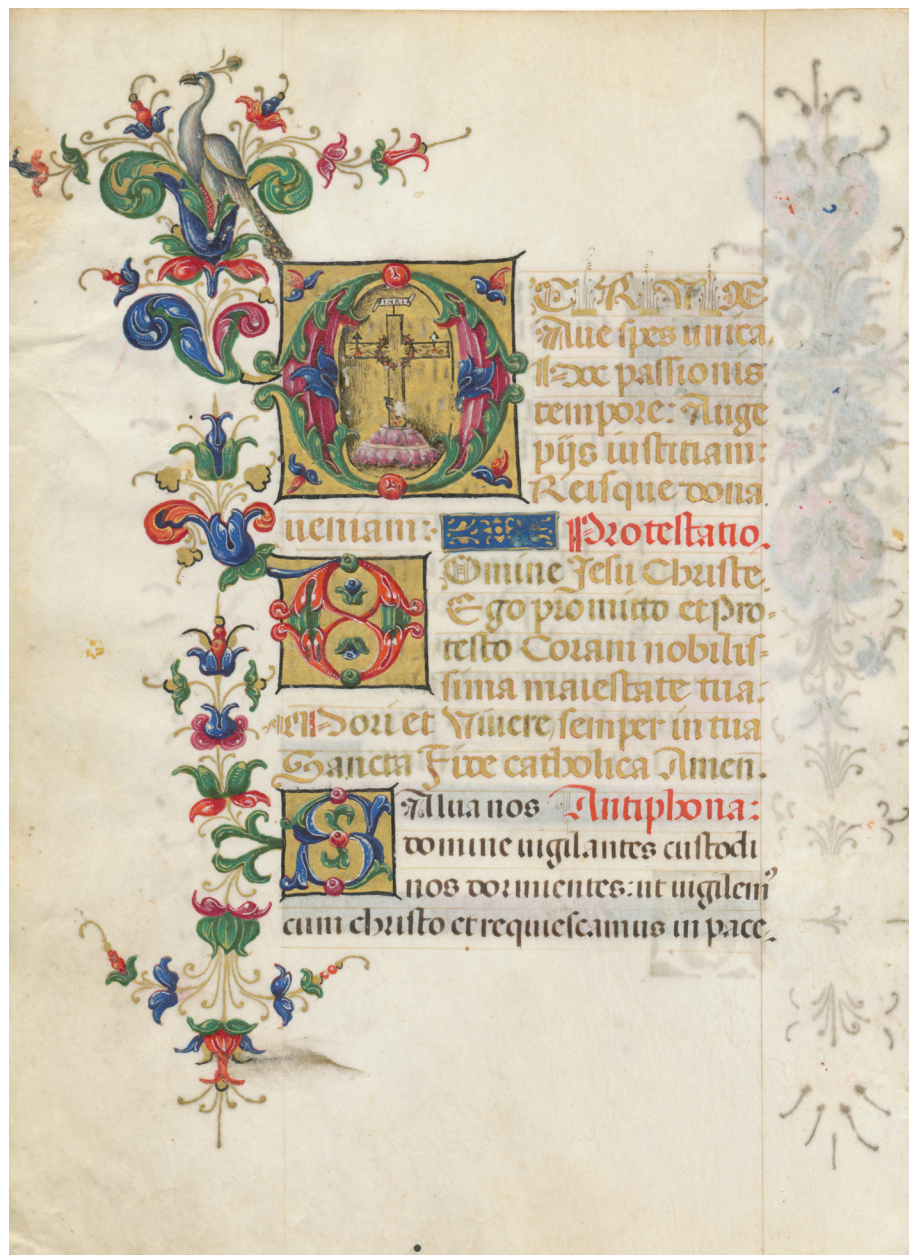 INRI
O CRVX
Aue spes unica,
Hoc passionis
tempore: Auge
pijs iustitiam:
Reisque dona
ueniam: Protestatio.
DOmine Jesu Christe,
Ego promitto et Pro-
testo Coram nobilis-
sima maiestate tua:
Mori et Viuere, semper in tua
Sancta Fide catholica Amen.
SAlua nos Antiphona:
domine uigilantes custodi
nos dormientes: ut uigilemꝰ
cum christo et requiescamus in pace.